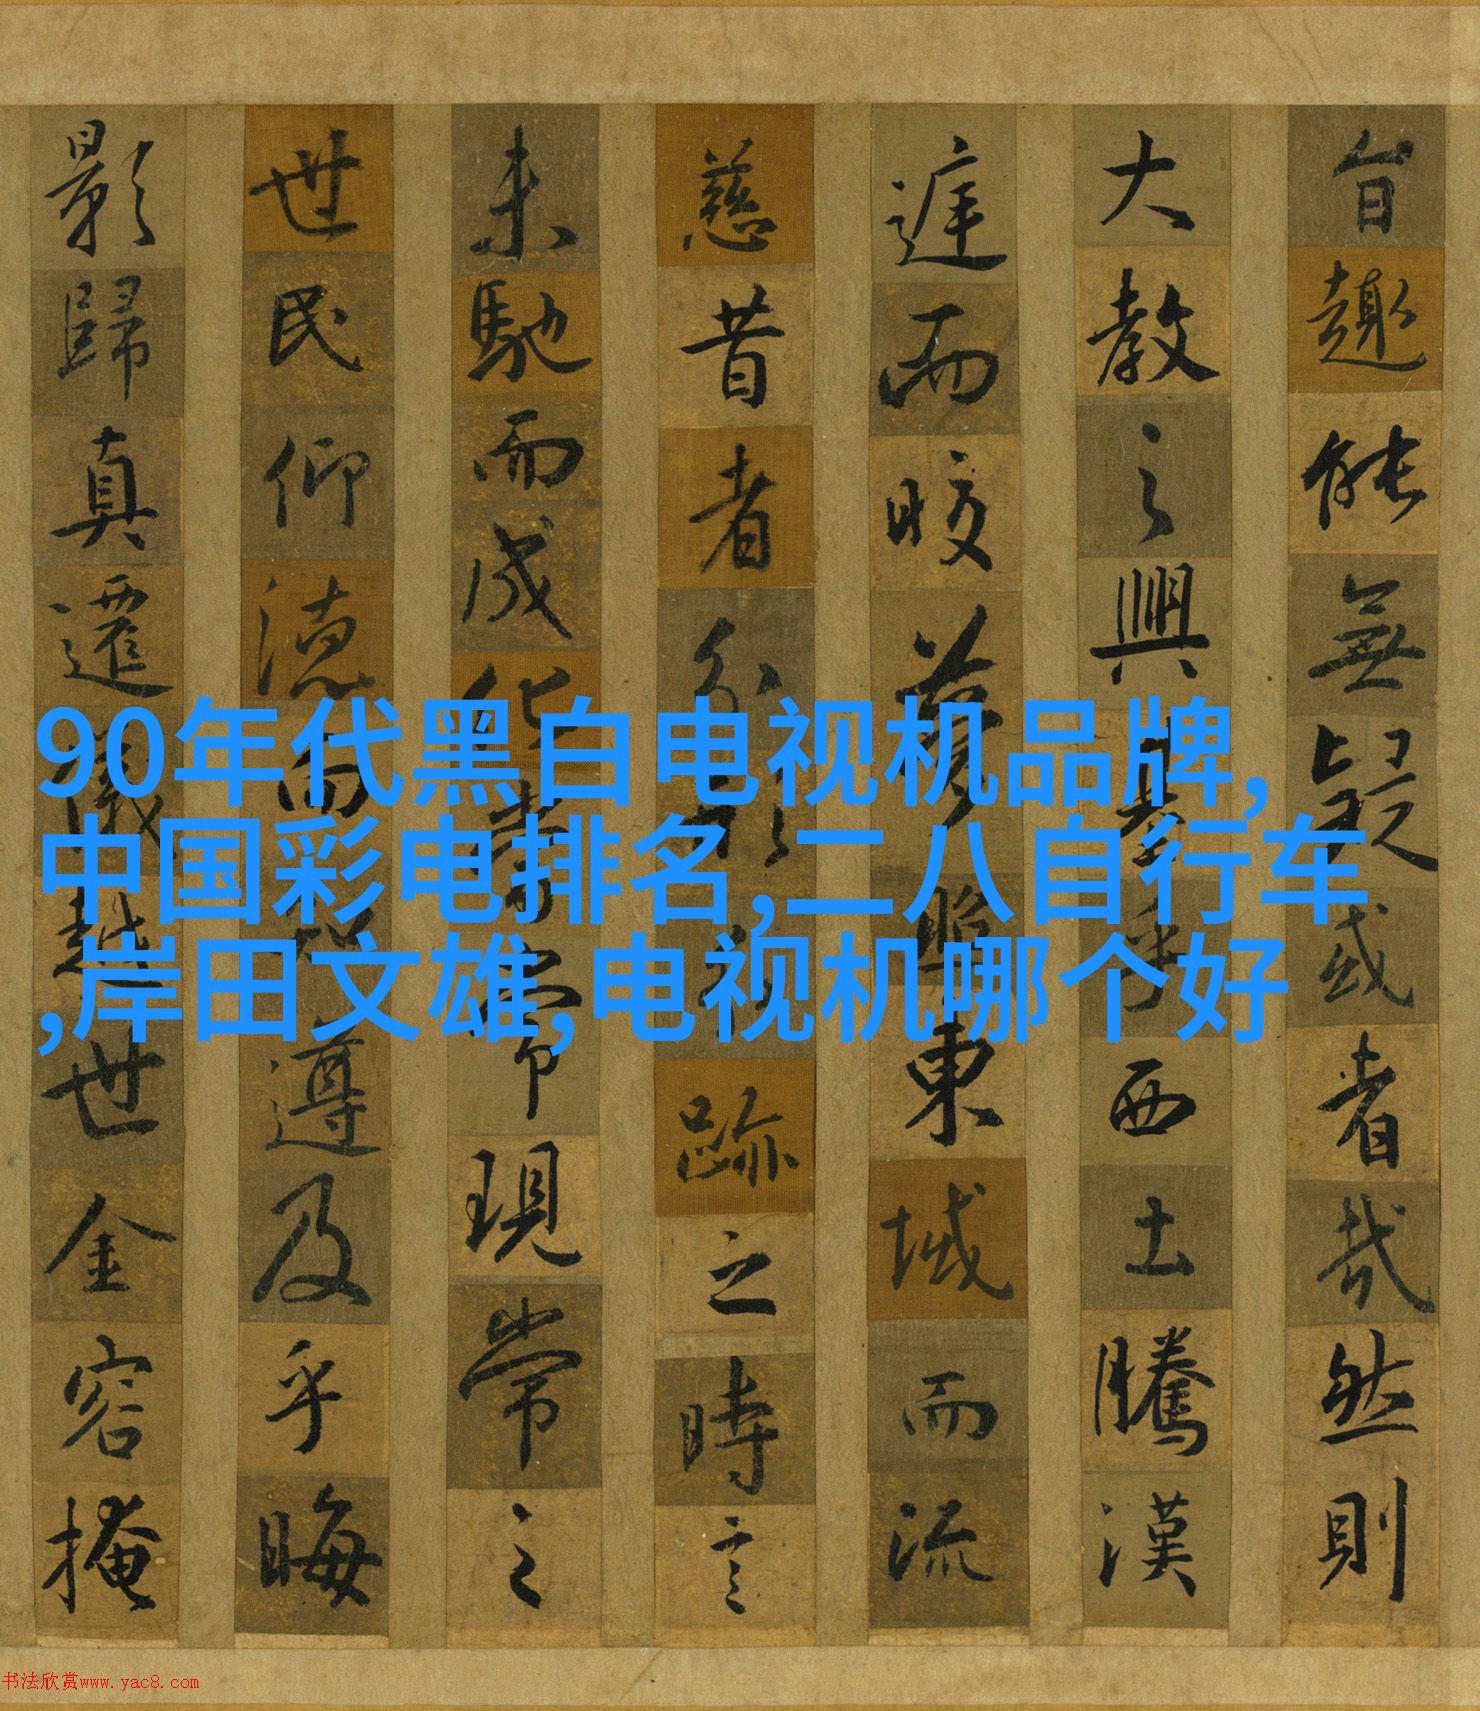 旨趣能無疑或者哉然則
大教之興基乎西土騰漢
庭而皎夢照東域而流
慈昔者分形分跡之時言
未馳而成化當常現常之
世民仰德而知遵及乎晦
影歸真遷儀越世金容掩
90年代黑白电视机品牌,
中国彩电排名,二八自行车
,岸田文雄,电视机哪个好
书法欣赏www.yac8.com